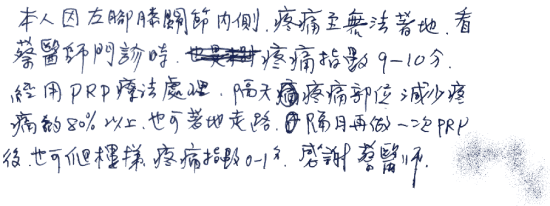 本人因左腳膝關節內側,疼痛至無法著地.看
蔡醫師門診時.疼痛指數9-10分.
經用PRP療法處理.隔天疼痛部位減少疼
痛約80%以上.也可著地走路.隔月再做一次PRP
後.也可爬樓梯.疼痛指數0-1分.感謝蔡醫師.